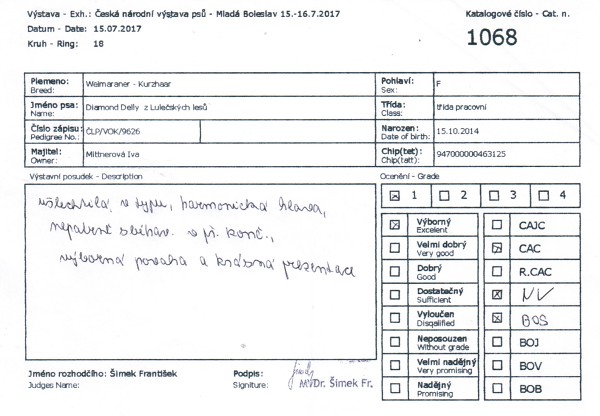 Výstava - Exh.: Česká národní výstava psů - Mladá Boleslav 15.-16.7.2017
Katalogové číslo - Cat. n.
Datum - Date: 15.07.2017
1068
Kruh - Ring: 18
Plemeno: Weimaraner - Kurzhaar Pohlaví: F
Breed: Sex:
Jméno psa: Diamond Delly z Lulečských lesů Třída: třída pracovní
Name: Class:
Číslo zápisu: ČLP/VOK/9626 Narozen: 15.10.2014
Pedigree No.: Date of birth:
Majitel: Mittnerová Iva Chip(tet): 947000000463125
Owner: Chip(tatt):
Výstavní posudek - Description Ocenění - Grade
1 2 3 4
ušlechtilá v typu, harmonická hlava,
nepatrně sbíhav. v př. konč.,
výborná povaha a krásná prezentace
Výborný CAJC
Excelent
Velmi dobrý CAC
Very good
Dobrý R.CAC
Good
Dostatečný NV
Sufficient
Vyloučen BOS
Disqalified
Neposouzen BOJ
Without grade
Velmi nadějný BOV
Very promising
Nadějný BOB
Promising
Jméno rozhodčího: Šimek František Podpis:
Judges Name: Signiture: MVDr. Šimek Fr.